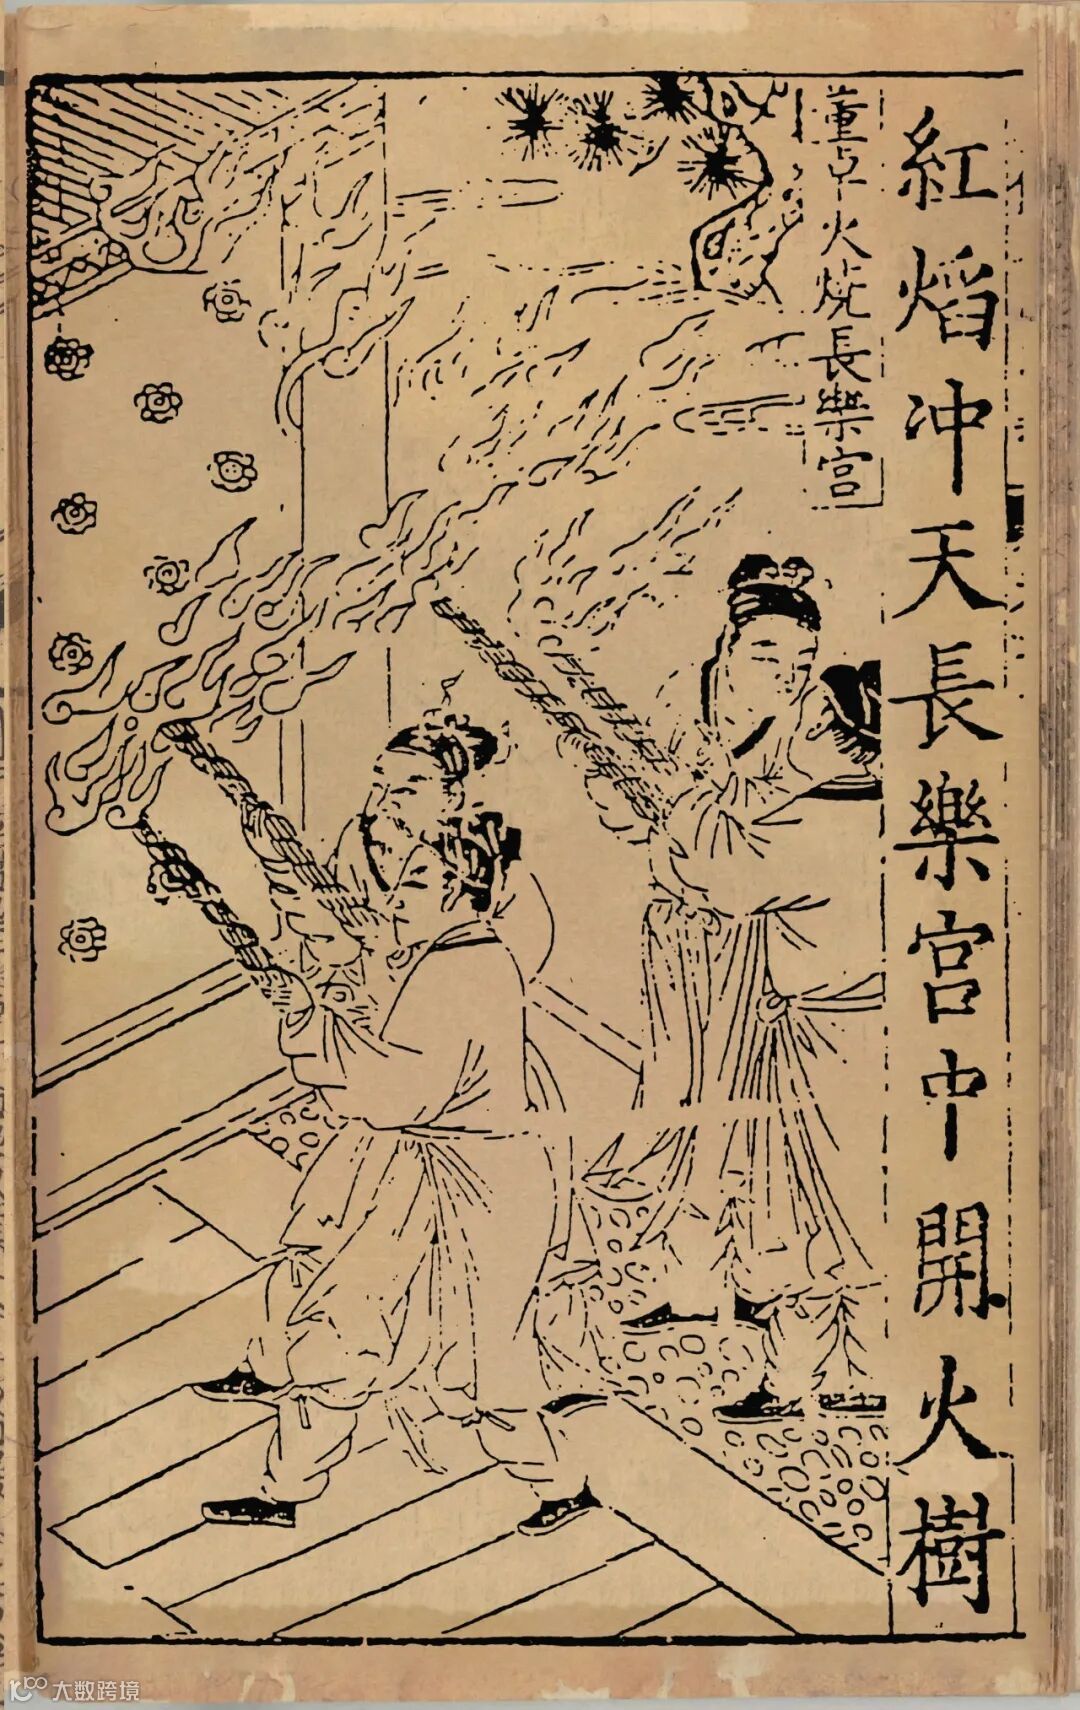 紅熖冲天長樂宮中開火樹
董卓火燒長樂宮
大数跨境